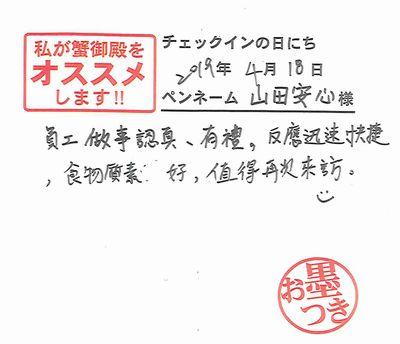 私が蟹御殿を
オススメ
します!!
チェックインの日にち
2019年 4月 18日
ペンネーム 山田安心 様
員工做事認真、有禮。反應迅速快捷
,食物質素 好,值得再次來訪。
お墨
つき